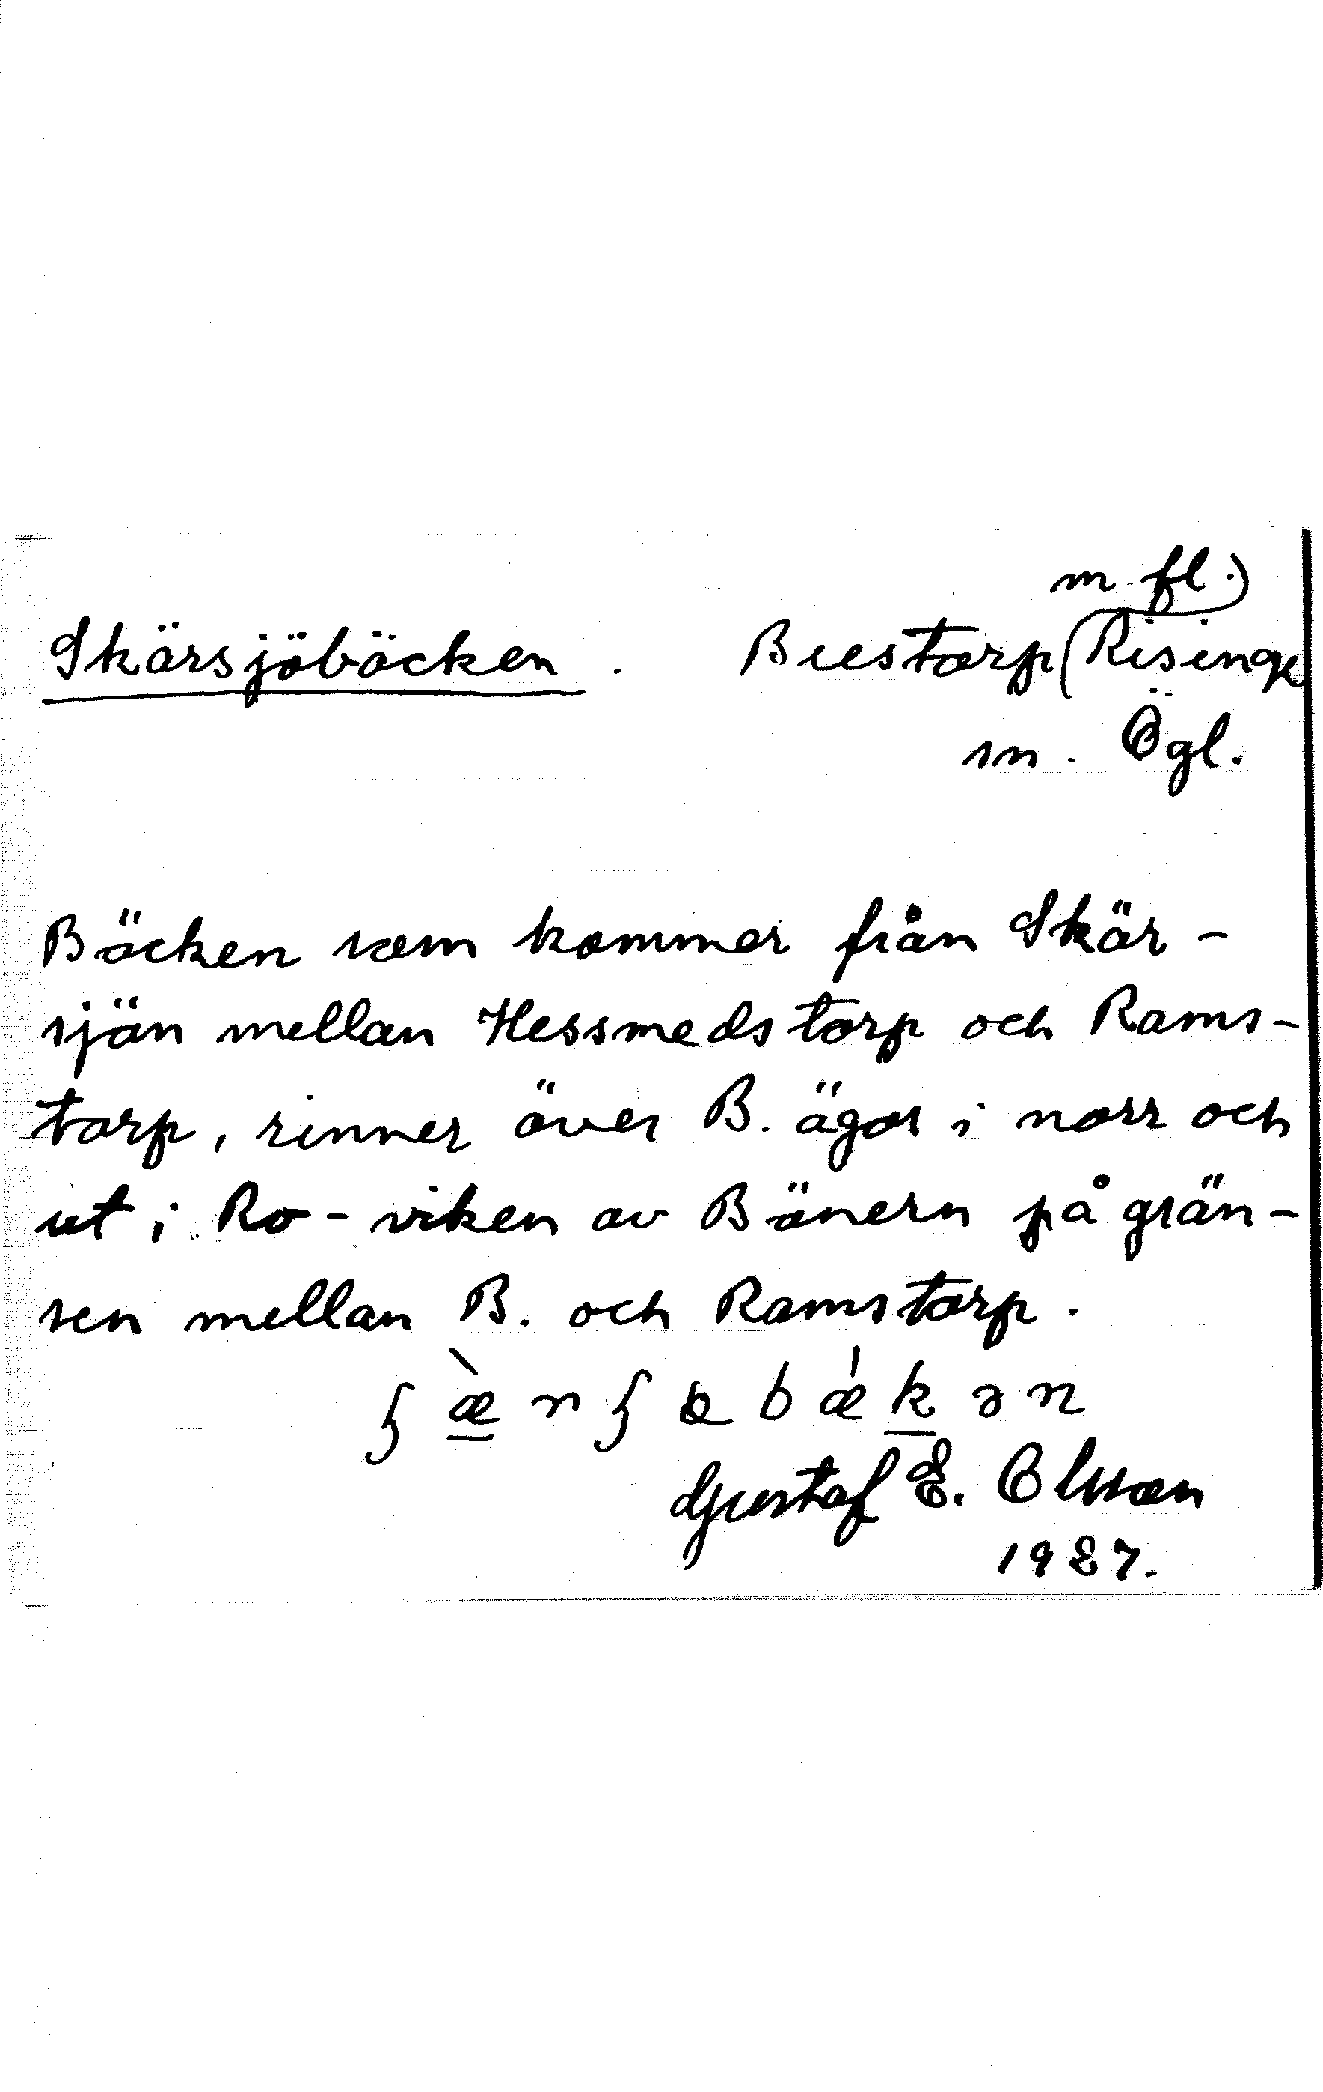 m fl.)
Skärsjöbäcken. Brestorp (Risinge
sn. Ögl.
Bäcken som kommer från Skär-
sjön mellan Hessmedstorp och Rams-
torp, rinner över B. ägor i norr och
ut i Ro-viken av Bönern på grän-
sen mellan B. och Ramstorp.
Gustaf E. Olsson
1927.